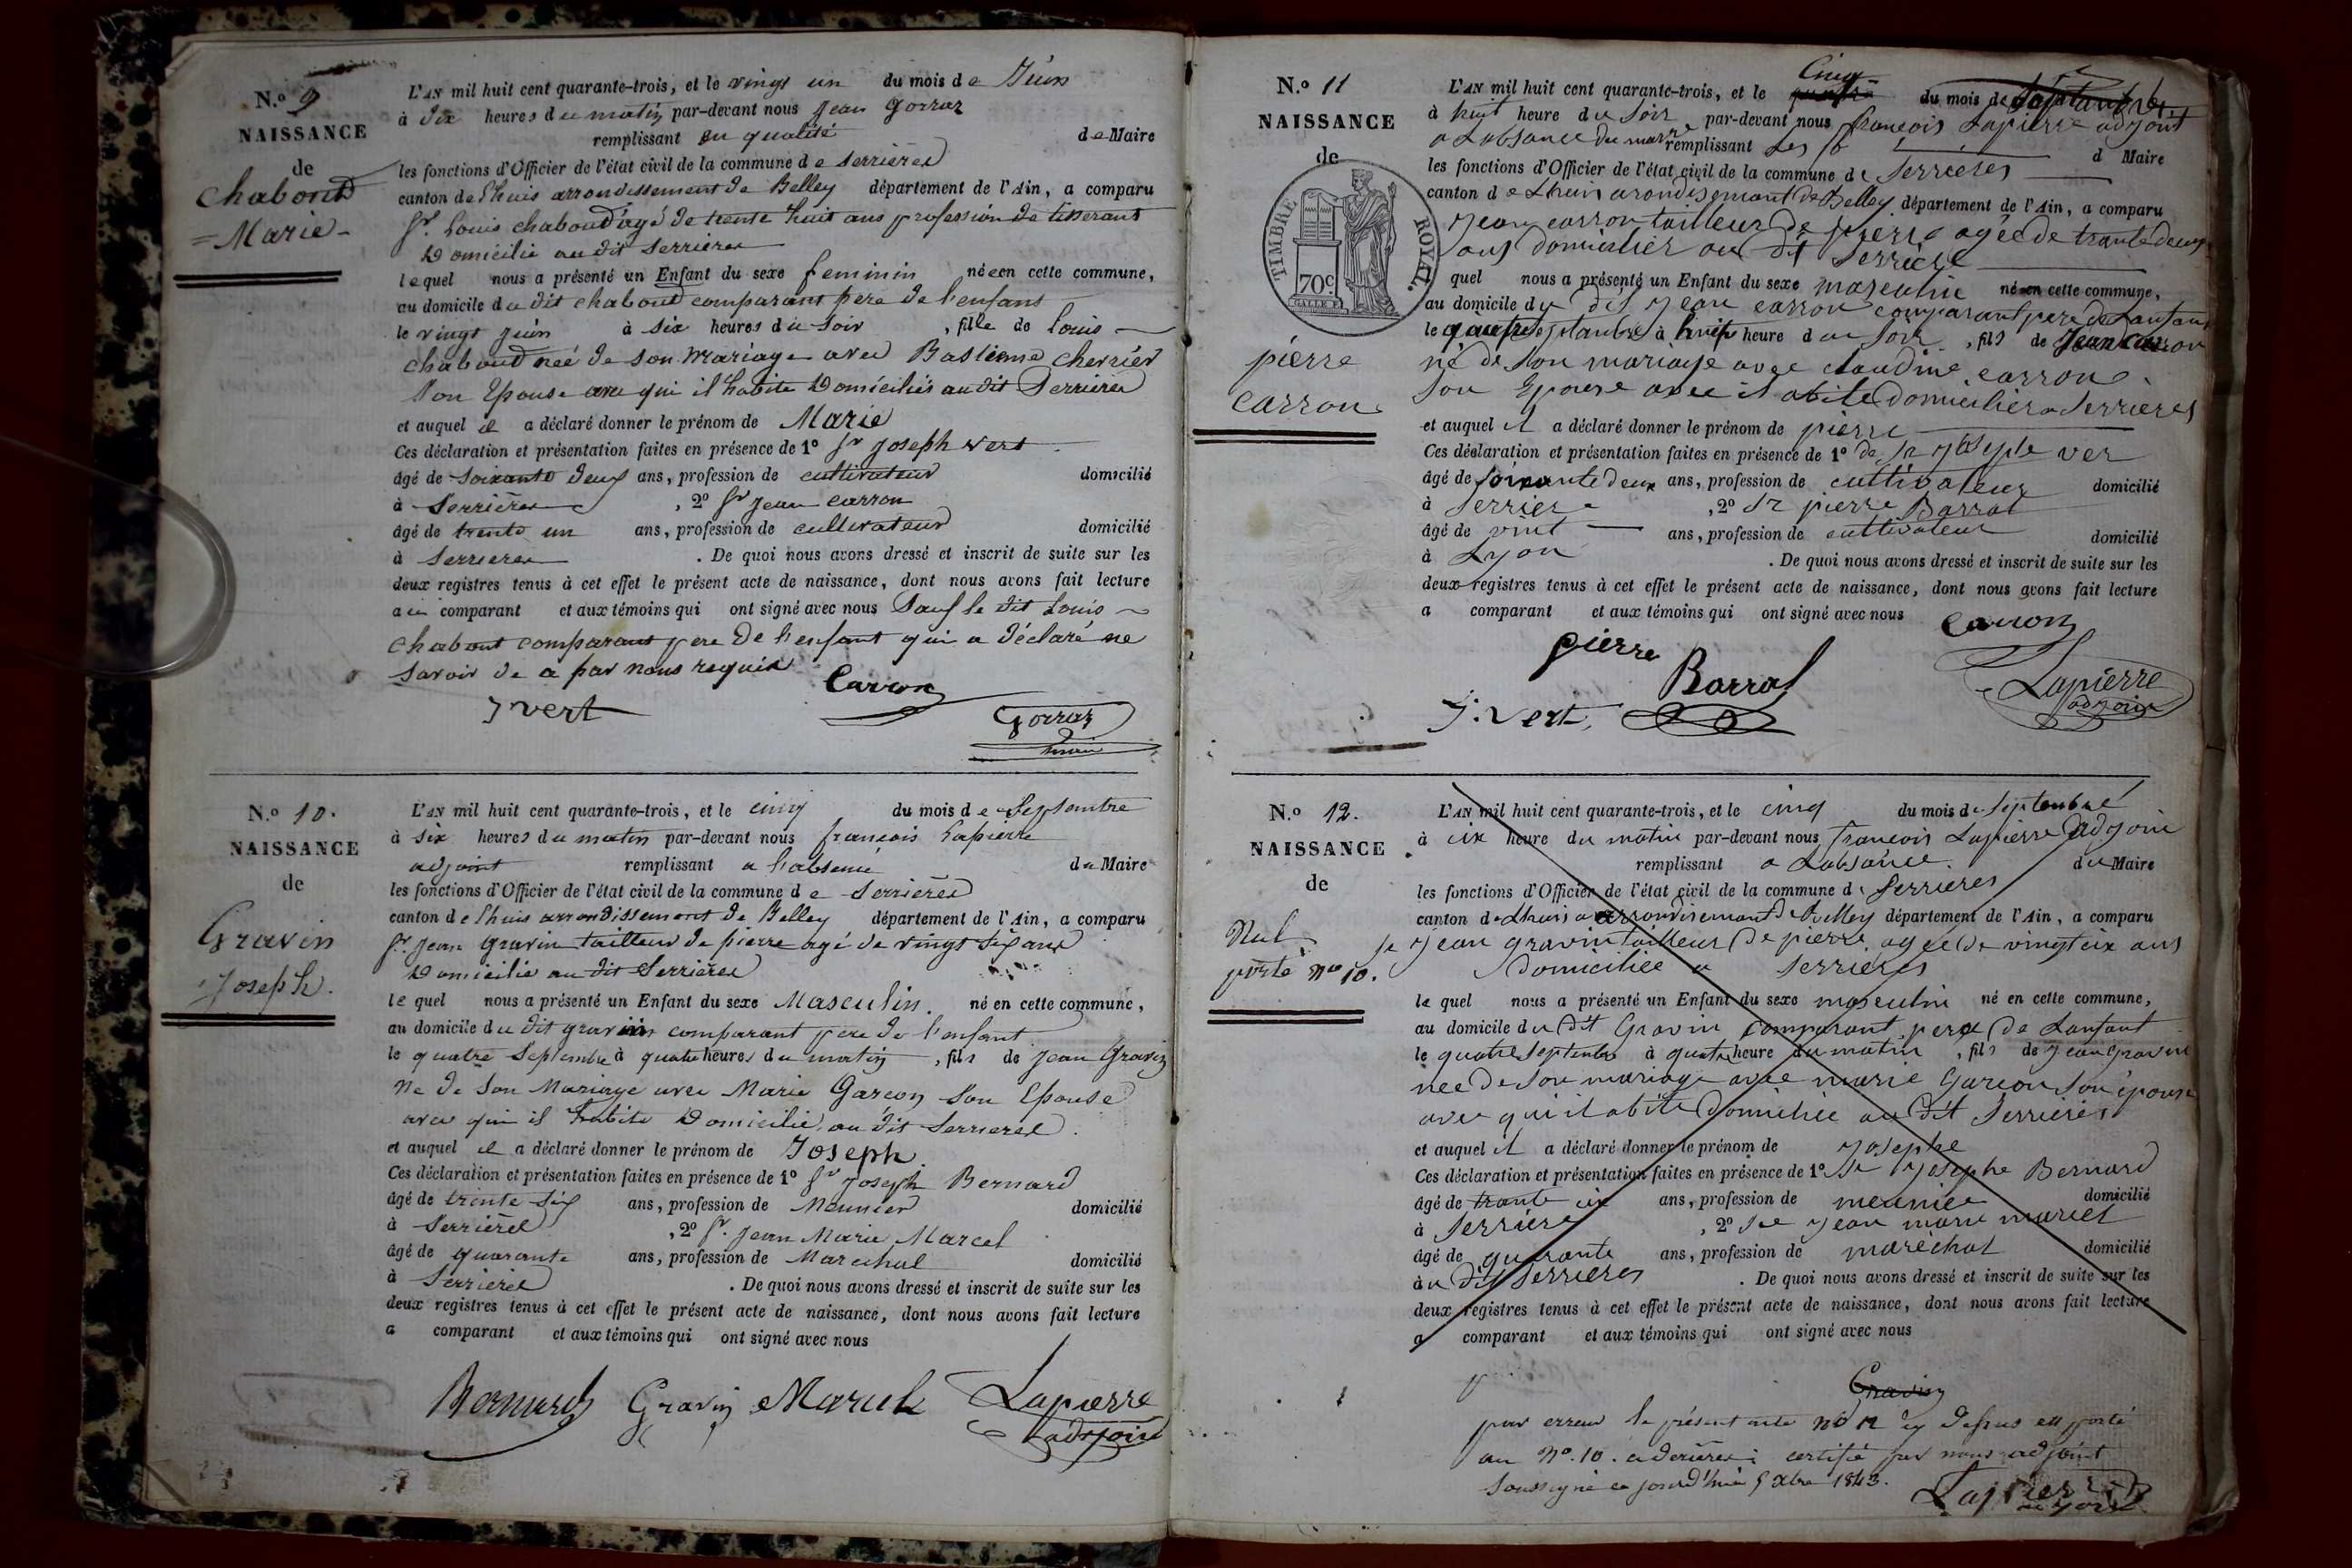 N.o 9
NAISSANCE
de
Chaboud
= Marie -
L'AN mil huit cent quarante-trois, et le vingt un du mois de Juin
à dix heures du matin par-devant nous Jean Gorraz
remplissant en qualité de Maire
les fonctions d'Officier de l'état civil de la commune de Serrières
canton de Lhuis arrondissement de Belley département de l'Ain, a comparu
Sr. Louis chaboud agé de trente huit ans profession de tisserant
Domicilié au dit Serrières
lequel nous a présenté un Enfant du sexe feminin née en cette commune,
au domicile du dit chaboud comparant pere de l'enfans
le vingt Juin à six heures du soir, fille de Louis
chaboud neé de son mariage avec Bastienne Cherrier
son Epouse avec qui il habite Domiciliés au dit Serrières
et auquel il a déclaré donner le prénom de Marie
Ces déclaration et présentation faites en présence de 1o Sr Joseph vert
âgé de soixante deux ans, profession de cultivateur domicilié
à Serrières, 2o Sr Jean Carron
âgé de trente un ans, profession de cultivateur domicilié
à Serrieres. De quoi nous avons dressé et inscrit de suite sur les
deux registres tenus à cet effet le présent acte de naissance, dont nous avons fait lecture
au comparant et aux témoins qui ont signé avec nous Sauf le dit Louis
chabout comparant pere de l'enfant qui a déclaré ne
savoir de a par nous requis
Carron
J vert
Gorraz
maire
N.o 10.
NAISSANCE
de
Gravin
Joseph.
L'AN mil huit cent quarante-trois, et le cinq du mois de Septembre
à six heures du matin par-devant nous francois Lapierre
adjoint remplissant a l'absence du Maire
les fonctions d'Officier de l'état civil de la commune de Serrières
canton de Lhuis arrondissement de Belley département de l'Ain, a comparu
Sr. Jean Gravin tailleur de pierre agé de vingt six ans
Domicilié au dit Serrières
lequel nous a présenté un Enfant du sexe Masculin. né en cette commune,
au domicile du dit gravin comparant pere de l'enfant
le quatre Septembre à quatre heures du matin, fils de Jean Gravin
Né de son Mariage avec Marie Garcon son Epouse
avec qui il habite Domicilié au dit Serrieres.
et auquel il a déclaré donner le prénom de Joseph
Ces déclaration et présentation faites en présence de 1o Sr Joseph Bernard
âgé de trente six ans, profession de Meunier domicilié
à Serrieres, 2o Sr. Jean Marie Marcel
âgé de quarante ans, profession de Marechal domicilié
à Serrieres. De quoi nous avons dressé et inscrit de suite sur les
deux registres tenus à cet effet le présent acte de naissance, dont nous avons fait lecture
a comparant et aux témoins qui ont signé avec nous
Bernard Gravin Marcel Lapierre
adjoint
N.o 11
NAISSANCE
de
TIMBRE ROYAL.
70c
pierre
carron
Cinq
L'AN mil huit cent quarante-trois, et le quatre du mois de Septambre
à huit heure du Soir par-devant nous françois Lapierre adjoint
a Labsance du maire remplissant Les d Maire
les fonctions d'Officier de l'état civil de la commune de Serrieres
canton de Lhuis arondisemant de Belley département de l'Ain, a comparu
Jean carron tailleur de pierre agée de trante deux
ans domicilier au dit Serriere
quel nous a présenté un Enfant du sexe masculin né en cette commune,
au domicile du dit Jean carron comparant pere de Lanfans
le quatre septambre à huit heure du soir, fils de Jean Carron
né de son mariage avec claudine carron
son Epouse avec il abite domicilier a Serrieres
et auquel il a déclaré donner le prénom de pierre
Ces déclaration et présentation faites en présence de 1o de Sr Josephe ver
âgé de soixante deux ans, profession de cultivateur domicilié
à Serriere, 2o Sr pierre Barral
âgé de vint ans, profession de cultivateur domicilié
à Lyon. De quoi nous avons dressé et inscrit de suite sur les
deux registres tenus à cet effet le présent acte de naissance, dont nous avons fait lecture
a comparant et aux témoins qui ont signé avec nous Carron
pierre
Barral
Lapierre
adjoint
J. vert
N.o 12.
NAISSANCE
de
Nul
porté no 10.
L'AN mil huit cent quarante-trois, et le cinq du mois de Septembre
à six heure du matin par-devant nous francois Lapierre adjoin
remplissant a Labsance. du Maire
les fonctions d'Officier de l'état civil de la commune de Serrieres
canton de Lhuis arrondisemant de Belley département de l'Ain, a comparu
Sr Jean gravin tailleur de pierre agée de vingt six ans
domiciliée a Serrieres
le quel nous a présenté un Enfant du sexe masculin né en cette commune,
au domicile du dit Gravin comparant pere de Lanfant
le quatre Septembre à quatre heure du matin, fils de Jean gravin
née de son mariage avec marie Garcon son épouse
avec qui il abite domicilie au dit Serrieres
et auquel il a déclaré donner le prénom de Josephe
Ces déclaration et présentation faites en présence de 1o Sr Josephe Bernard
âgé de trante six ans, profession de meunier domicilié
à Serriere, 2o Sr Jean marie marcel
âgé de quarante ans, profession de maréchal domicilié
àu dit Serrieres. De quoi nous avons dressé et inscrit de suite sur les
deux registres tenus à cet effet le présent acte de naissance, dont nous avons fait lecture
a comparant et aux témoins qui ont signé avec nous
Gravin
par erreur le présent acte no 12 cy dessus est porté
au No. 10. certifié par nous adjoint
Soussigné ce jourd'hui 5 xbre 1843.
Lapierre
adjoint